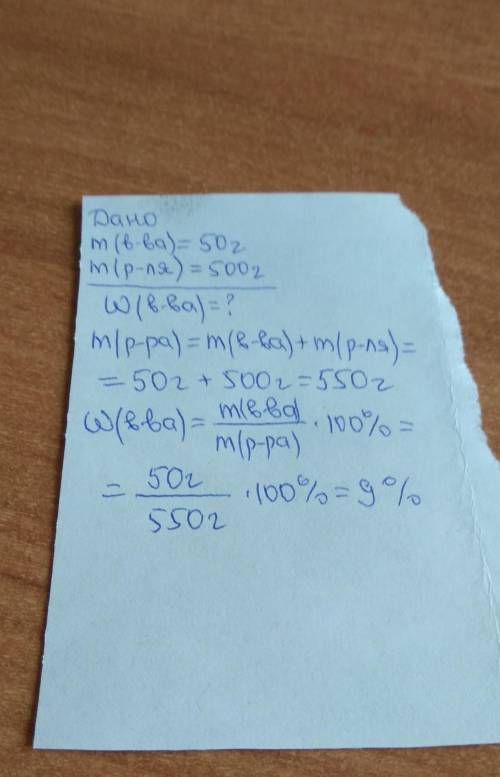 Дано
m(в-ва)= 50г
m(р-ля) = 500г
W(в-ва)=?
m(р-ра)= m(в-ва)+m(р-ля)=
= 50г + 500г = 550г
W(в-ва)= m(в-ва)/m(р-ра) · 100% =
= 50г/550г · 100% = 9%